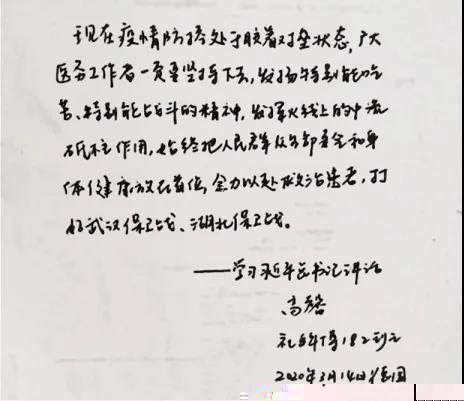 现在疫情防控处于胶着对垒状态,广大
医务工作者一定要坚持下去,发扬特别能吃
苦、特别能战斗的精神,发挥火线上的中流
砥柱作用,始终把人民群众生命安全和身
体健康放在首位,全力以赴救治患者,打
好武汉保卫战、湖北保卫战。
——学习习近平总书记讲话
高
2020年3月14日